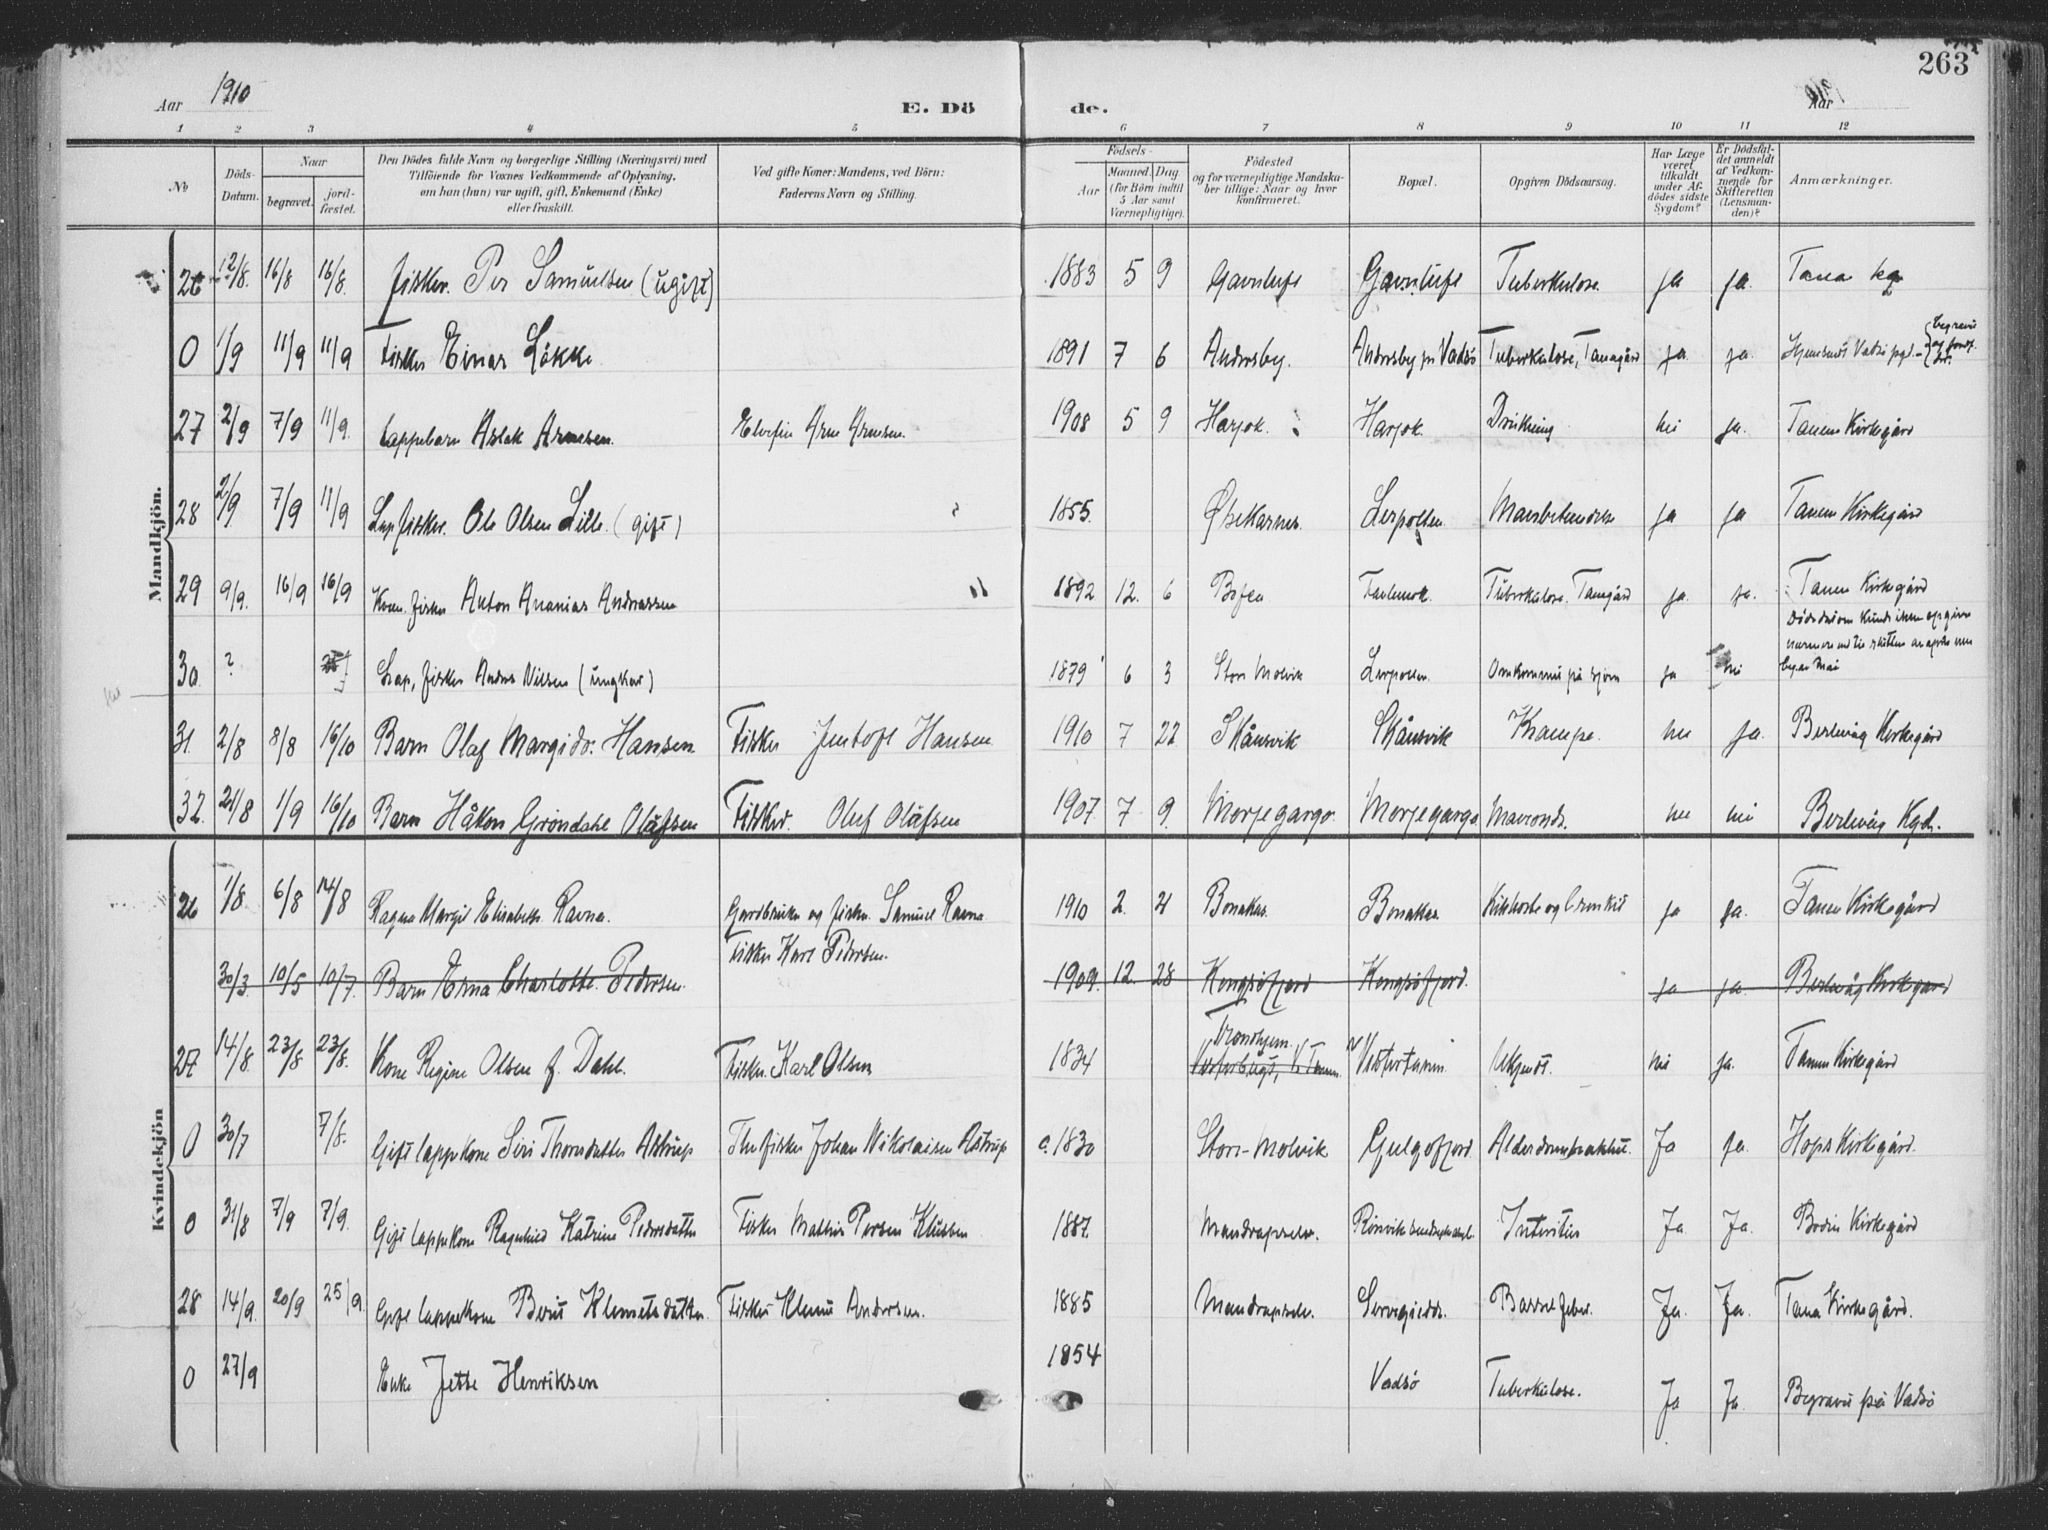 263
Aar 1910 E. Döde. Aar 1910
1 2 3 4 5 6 7 8 9 10 11 12
No
Döds-Datum.
Naar
begravet.
jord-fæstet.
Den Dödes fulde Navn og borgerlige Stilling (Næringsvei) med
Tilföiende for Voxnes Vedkommende af Oplysning,
om han (hun) var ugift, gift, Enkemand (Enke)
eller fraskilt.
Ved gifte Koner: Mandens, ved Börn:
Faderens Navn og Stilling.
Födsels-
Aar
Maaned. Dag
(for Börn indtil
5 Aar samt
Værnepligtige).
Födested
og for værnepligtige Mandska-
ber tillige: Naar og hvor
konfirmeret.
Bopæl.
Opgiven Dödsaarsag.
Har Læge
været
tilkaldt
under Af-
dödes sidste
Sygdom?
Er Dödsfal-
det anmeldt
af Vedkom-
mende for
Skifteretten
(Lensman-
den)?
Anmærkninger.
Mandkjön.
26 12/8. 16/8 16/8. fisker. Per Samuelsen (ugift) 1883 5 9 Tuberkulose ja ja. Tana
0 1/9 11/9 11/9 Fisker Einar Løkke 1891 7 6 Andersby. Andersby pr Vadsø Tuberkulose, ja. ja.
27 2/9 7/9 11/9. Lappebarn Aslak Arnesen. Arne Arnesen. 1908 5 9 Harjok. Harjok. nei ja. Tanen Kirkegård
28 2/9 7/9 11/9 Lap fisker. Ole Olsen Lille. (gift) 1855. Leirpollen ja ja Tanen Kirkegård
29 9/9. 16/9 16/9 Kven. fisker Anton Ananias Andreassen 1892 12. 6 Tuberkulose. ja. ja. Tanen Kirkegård
30 ? Lap, fisker Anders Nilsen (ungkar) 1879 6 3 Stor Molvik Leirpollen Omkommet på sjøen ja nei
31. 2/8 8/8 16/10 Barn Olaf Margido. Hansen Fisker Jentoft Hansen 1910 7 22 Skånsvik Skånsvik Krampe. nei ja. Berlevåg Kirkegård
32. 21/8 1/9 16/10 Barn Håkon Grøndahl Olafsen Fisker. Oluf Olafsen 1907. 7 9. Morjegargo. Morjegargo nei nei Berlevåg Kgd.
Kvindekjön
26 1/8. 6/8 14/8 Ragna Margit Elisabeth Ravna. Gardbruker og fisker. Samuel Ravna 1910 2. 21 Bonakas. Bonakas Kikhoste og bronkit ja ja. Tanen Kirkegård
30/3. 10/5 10/7. Barn Erna Charlotte Pedersen. Fisker Karl Pedersen. 1909. 12. 28 Kongsøfjord Kongsøfjord. ja ja. Berlevåg Kirkegård
27 14/8. 23/8 23/8. Kone Regine Olsen f. Dahl. Fisker. Karl Olsen 1834 Trondhjem. Vestertanen Ukjendt. nei ja. Tanen Kirkegård
0 30/7 7/8. Gift lappekone Siri Thomsdatter Astrup Johan Nikolaisen Astrup c. 1830 Stor-Molvik Gulgofjord Ja ja. Hops Kirkegård.
0 31/8 7/9 7/9. Gift lappekone Ragnhild Katrine Pedersdatter Fisker Mathis Persen 1887. Ja Ja. Bodin Kirkegård
28 14/9. 20/9 25/9. Gift lappekone Berit Klemetsdatter. Fisker Klemet Andersen. 1885 Barselfeber. Ja. Ja. Tana Kirkegård.
0 27/9 Enke Jette Henriksen 1854 Vadsø Tuberkulose. Ja Ja. Begravet på Vadsø